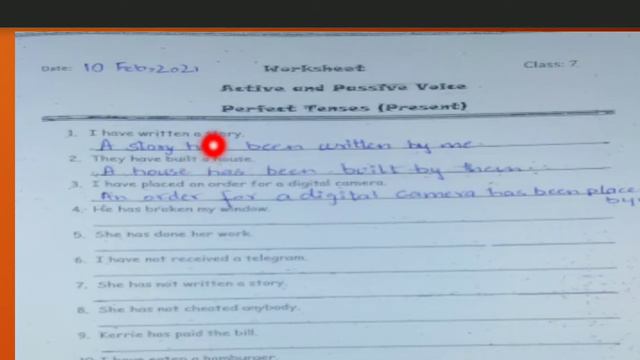 Date: 10 Feb, 2021 Worksheet Class: 7
Active and Passive Voice
Perfect Tenses (Present)
1. I have written a story.
A story been written by me.
2. They have built a house.
A house has been built by them.
3. I have placed an order for a digital camera.
An order for a digital camera has been place
by
4. He has broken my window.
5. She has done her work.
6. I have not received a telegram.
7. She has not written a story.
8. She has not cheated anybody.
9. Kerrie has paid the bill.
10. I have eaten a hamburger.